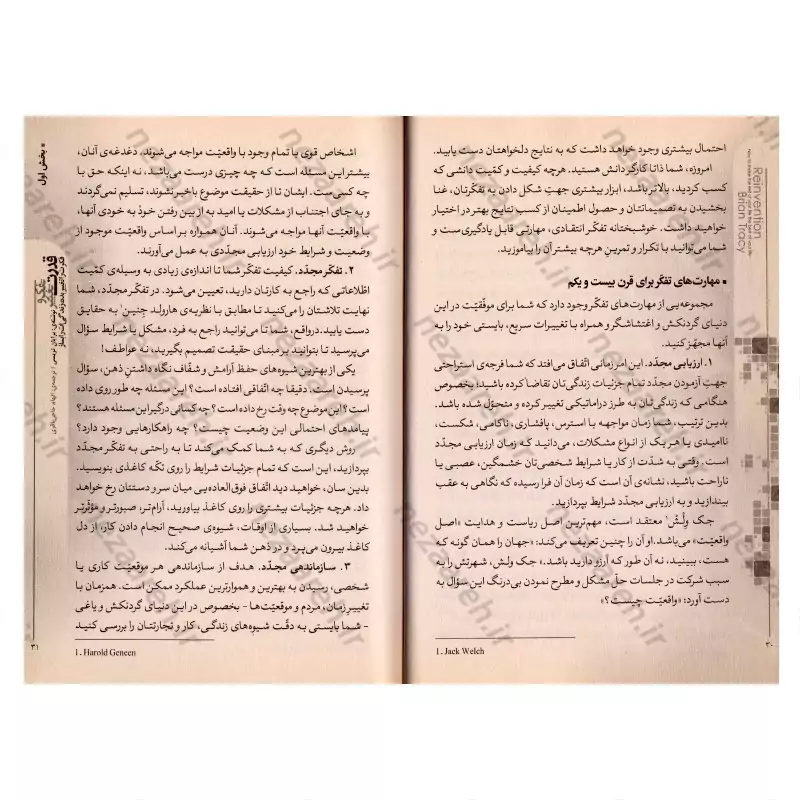 Reinvention
How to Make the Rest of Your Life the Best of Your Life
Brian Tracy
احتمال بیشتری وجود خواهد داشت که به نتایج دلخواهتان دست یابید.
امروزه، شما ذاتاً کارگر دانش هستید. هرچه کیفیت و کمیّت دانشی که
کسب کردید، بالاتر باشد، ابزار بیشتری جهتِ شکل دادن به تفکّرتان، غنا
بخشیدن به تصمیماتتان و حصول اطمینان از کسب نتایج بهتر در اختیار
خواهید داشت. خوشبختانه تفکّر انتقادی، مهارتی قابل یادگیری‌ست و
شما می‌توانید با تکرار و تمرینِ هرچه بیشتر آن را بیاموزید.
▪ مهارت‌های تفکّر برای قرن بیست و یکم
مجموعه‌یی از مهارت‌های تفکّر وجود دارد که شما برای موفّقیّت در این
دنیای گردنکش و اغتشاشگر و همراه با تغییرات سریع، بایستی خود را به
آنها مجهّز کنید.
۱. ارزیابی مجدّد. این امر زمانی اتّفاق می‌افتد که شما فرجه‌ی استراحتی
جهتِ آزمودن مجدّد تمام جزئیات زندگی‌تان تقاضا کرده باشید؛ بخصوص
هنگامی که زندگی‌تان به طرز دراماتیکی تغییر کرده و متحوّل شده باشد.
بدین ترتیب، شما زمان مواجهه با استرس، پافشاری، ناکامی، شکست،
ناامیدی یا هر یک از انواع مشکلات، می‌دانید که زمان ارزیابی مجدّد
است. وقتی به شدّت از کار یا شرایط شخصی‌تان خشمگین، عصبی یا
ناراحت باشید، نشانه‌ی آن است که زمان آن فرا رسیده که نگاهی به عقب
بیندازید و به ارزیابی مجدّد شرایط بپردازید.
جک وِلْش¹ معتقد است، مهم‌ترین اصل ریاست و هدایت «اصل
واقعیّت» می‌باشد. او آن را چنین تعریف می‌کند: «جهان را همان گونه که
هست، ببینید، نه آن طور که آرزو دارید باشد.» جک ولش، شهرتش را به
سبب شرکت در جلسات حل مشکل و مطرح نمودن بی‌درنگ این سؤال به
دست آورد: «واقعیّت چیست؟»
1. Jack Welch
۳۰
▪ بخش اول
قدرت تفکّر و تغییر
نوشته‌ی: برایان تریسی / ترجمه‌ی: الهام حاجی‌باقری
اشخاص قوی با تمام وجود با واقعیّت مواجه می‌شوند. دغدغه‌ی آنان،
بیشتر این مسئله است که چه چیزی درست می‌باشد، نه اینکه حق با
چه کسی‌ست. ایشان تا از حقیقت موضوع باخبر نشوند، تسلیم نمی‌گردند
و به جای اجتناب از مشکلات یا امید به از بین رفتن خودْ به خودی آنها،
با واقعیّت آنها مواجه می‌شوند. آنان همواره بر اساس واقعیّت موجود از
وضعیت و شرایط خود ارزیابی مجدّدی به عمل می‌آورند.
۲. تفکّر مجدّد. کیفیت تفکّر شما تا اندازه‌ی زیادی به وسیله‌ی کمّیت
اطّلاعاتی که راجع به کارتان دارید، تعیین می‌شود. در تفکّر مجدّد، شما
نهایت تلاشتان را می‌کنید تا مطابق با نظریه‌ی هارولد جِنین¹ به حقایق
دست یابید. درواقع، شما تا می‌توانید راجع به فرد، مشکل یا شرایط سؤال
می‌پرسید تا بتوانید بر مبنای حقیقت تصمیم بگیرید، نه عواطف!
یکی از بهترین شیوه‌های حفظ آرامش و شفّاف نگاه داشتنِ ذهن، سؤال
پرسیدن است. دقیقاً چه اتّفاقی افتاده است؟ این مسئله چه طور روی داده
است؟ این موضوع چه وقت رخ داده است؟ چه کسانی درگیر این مسئله هستند؟
پیامدهای احتمالی این وضعیت چیست؟ چه راهکارهایی وجود دارد؟
روش دیگری که به شما کمک می‌کند تا به راحتی به تفکّر مجدّد
بپردازید، این است که تمام جزئیات شرایط را روی تکّه کاغذی بنویسید.
بدین سان، خواهید دید اتّفاق فوق‌العاده‌یی میان سر و دستتان رخ خواهد
داد. هرچه جزئیات بیشتری را روی کاغذ بیاورید، آرام‌تر، صبورتر و مؤثّرتر
خواهید شد. بسیاری از اوقات، شیوه‌ی صحیح انجام دادن کار، از دل
کاغذ بیرون می‌پرد و در ذهن شما آشیانه می‌کند.
۳. سازماندهی مجدّد. هدف از سازماندهی هر موقعیّت کاری یا
شخصی، رسیدن به بهترین و هموارترین عملکرد ممکن است. همزمان با
تغییر زمان، مردم و موقعیّت‌ها - بخصوص در این دنیای گردنکش و یاغی
- شما بایستی به دقّت شیوه‌های زندگی، کار و تجارتتان را بررسی کنید
1. Harold Geneen
۳۱
nezareh.ir